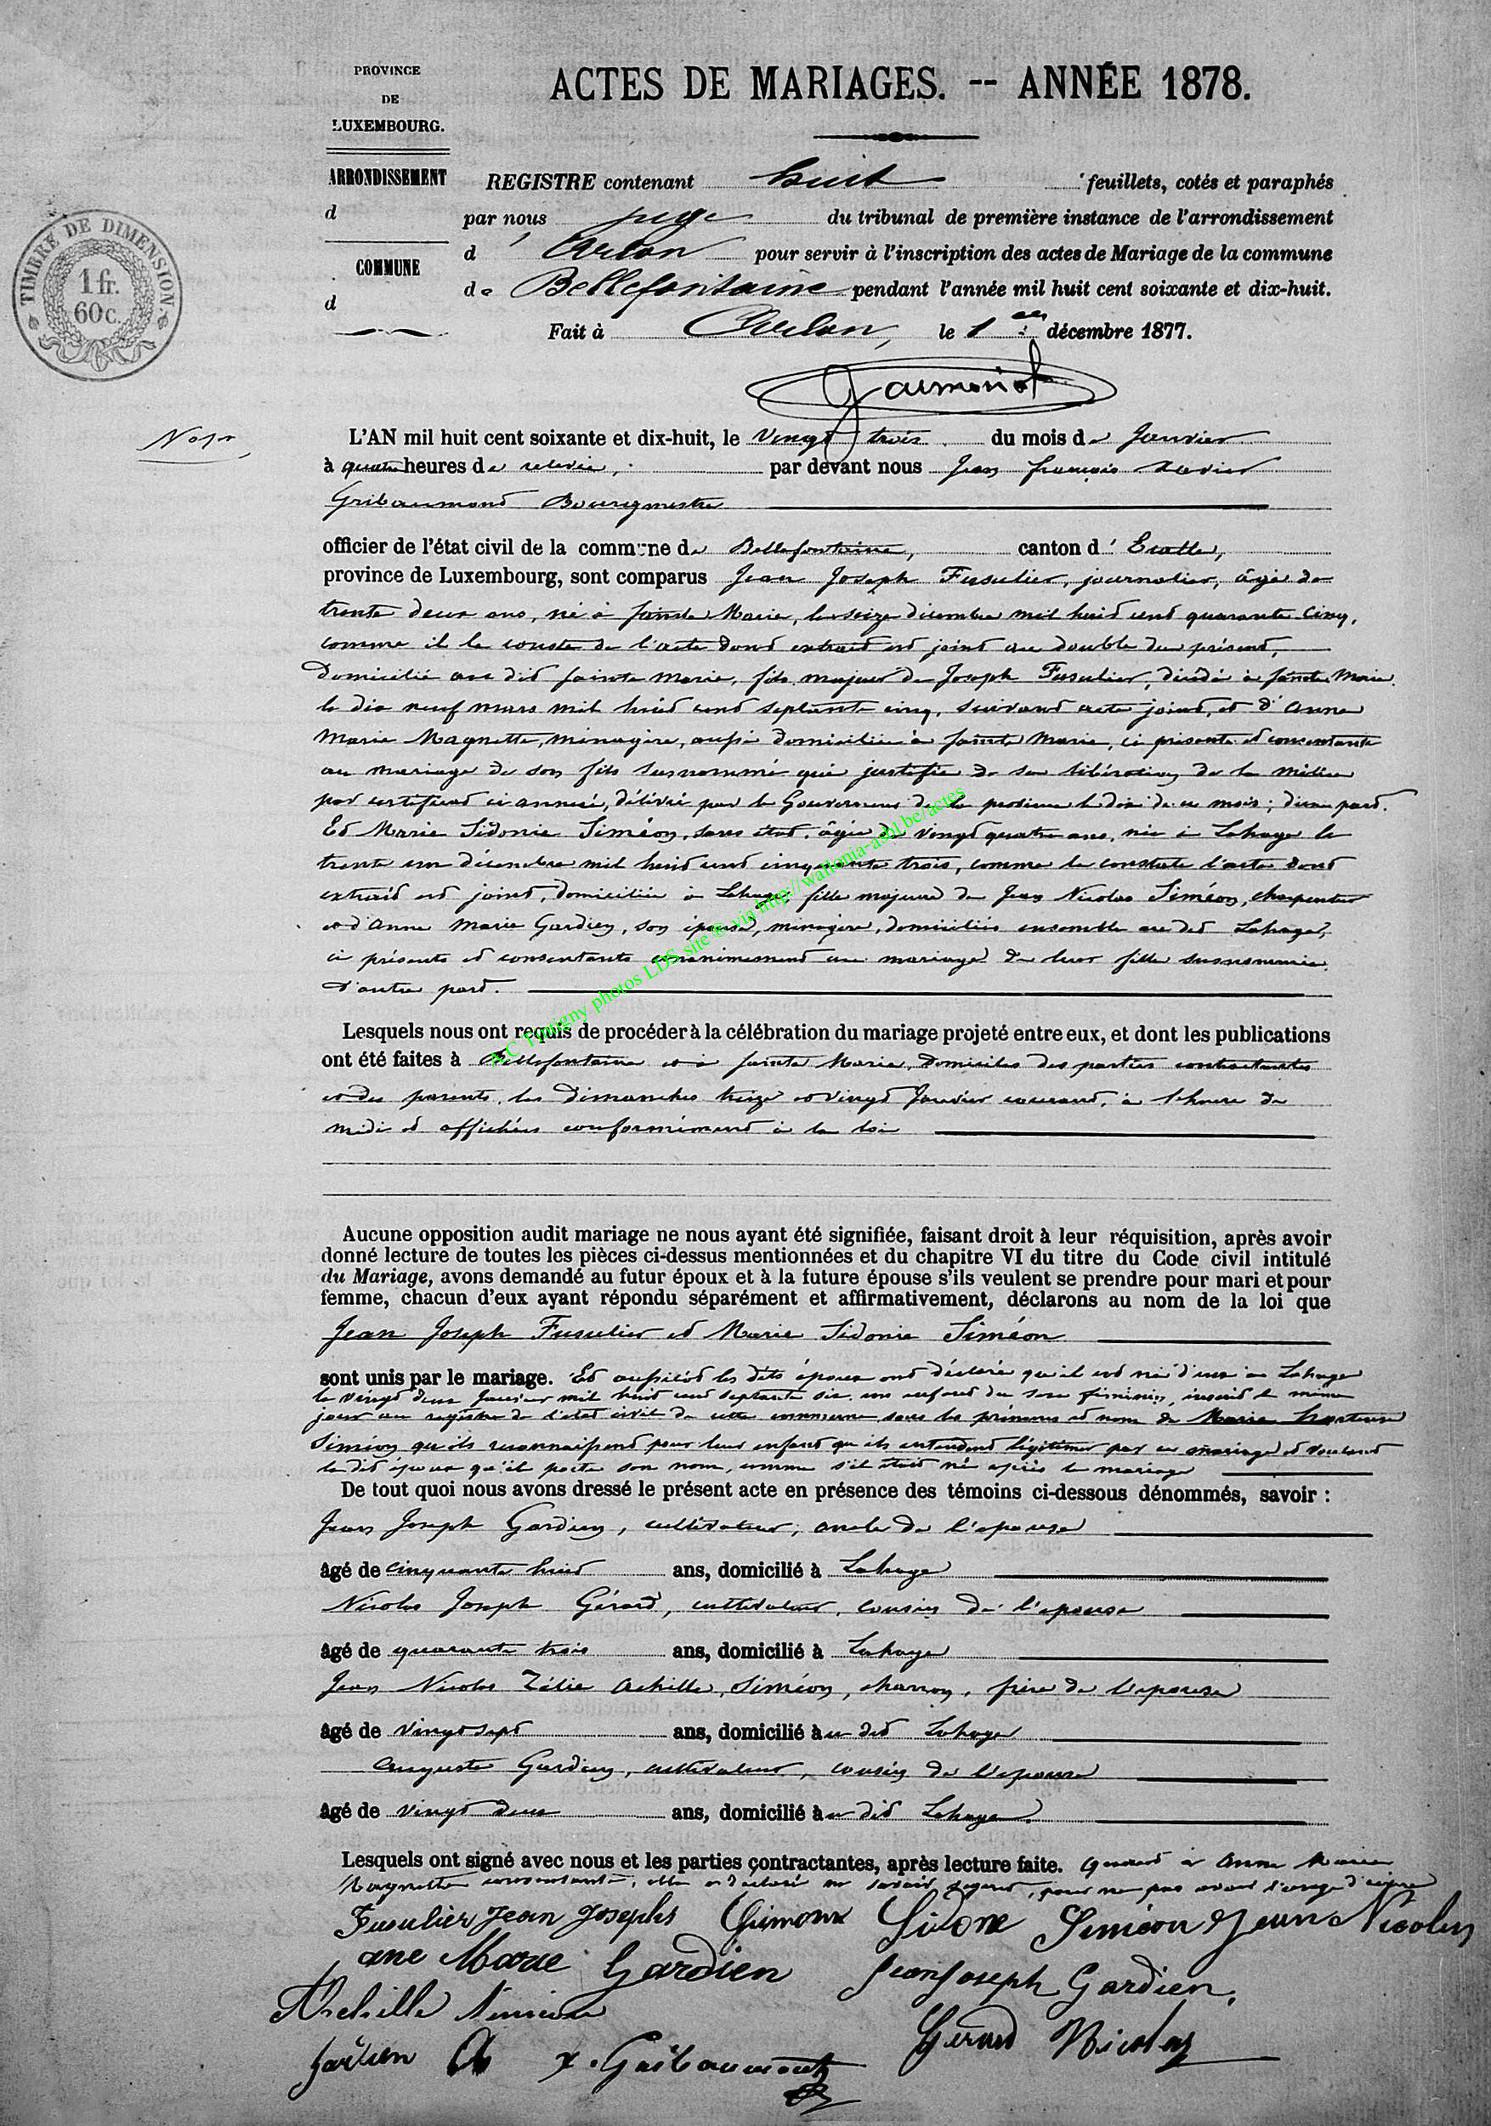 PROVINCE
DE
LUXEMBOURG.
ARRONDISSEMENT
d
COMMUNE
d
TIMBRE DE DIMENSION
1 fr.
60 c.
ACTES DE MARIAGES. -- ANNÉE 1878.
REGISTRE contenant huit feuillets, cotés et paraphés
par nous juge du tribunal de première instance de l'arrondissement
d' Arlon pour servir à l'inscription des actes de Mariage de la commune
de Bellefontaine pendant l'année mil huit cent soixante et dix-huit.
Fait à Arlon, le 1er décembre 1877.
No 1er
L'AN mil huit cent soixante et dix-huit, le vingt trois du mois de Janvier
à quatre heures de relevée, par devant nous Jean François Xavier
Gribaumont Bourgmestre
officier de l'état civil de la commune de Bellefontaine, canton d'Etalle,
province de Luxembourg, sont comparus Jean Joseph Fusulier, journalier, âgé de
trente deux ans, né à Sainte Marie, le seize décembre mil huit cent quarante cinq,
comme il le conste de l'acte dont extrait est joint au double du présent,
Domicilié au dit Sainte Marie, fils majeur de Joseph Fusulier, décédé à Sainte Marie
le dix neuf mars mil huit cent septante cinq, suivant acte joint, et d'Anne
Marie Magnette, ménagère, aussi domiciliée à Sainte Marie, ci présente et consentante
au mariage de son fils susnommé qui justifie de sa libération de la milice
par certificat ci annexé, délivré par le Gouverneur de la province le dix de ce mois; d'une part.
Et Marie Sidonie Siméon, sans état, âgée de vingt quatre ans, née à Lahage le
trente un décembre mil huit cent cinquante trois, comme le constate l'acte dont
extrait est joint, domiciliée à Lahage fille majeure de Jean Nicolas Siméon, charpentier
et d'Anne Marie Gardien, son épouse, ménagère, domiciliés ensemble au dit Lahage,
ci présents et consentants unanimement au mariage de leur fille susnommée,
d'autre part.
A.C. Tintigny photos LDS, site © via http://wallonia-asbl.be/actes
Lesquels nous ont requis de procéder à la célébration du mariage projeté entre eux, et dont les publications
ont été faites à Bellefontaine et à Sainte Marie, domiciles des parties contractantes
et des parents, les dimanches treize et vingt Janvier courant, à l'heure de
midi et affichées conformément à la loi
Aucune opposition audit mariage ne nous ayant été signifiée, faisant droit à leur réquisition, après avoir
donné lecture de toutes les pièces ci-dessus mentionnées et du chapitre VI du titre du Code civil intitulé
du Mariage, avons demandé au futur époux et à la future épouse s'ils veulent se prendre pour mari et pour
femme, chacun d'eux ayant répondu séparément et affirmativement, déclarons au nom de la loi que
Jean Joseph Fusulier et Marie Sidonie Siméon
sont unis par le mariage. Et aussitôt les dits époux ont déclaré qu'il est né d'eux à Lahage
le vingt deux Janvier mil huit cent septante six un enfant du sexe féminin, inscrit le même
jour au registre de l'état civil de cette commune sous les prénoms et nom de Marie Hortense
Siméon qu'ils reconnaissent pour leur enfant qu'ils entendent légitimer par ce mariage et voulant
le dit époux qu'il porte son nom, comme s'il était né après le mariage
De tout quoi nous avons dressé le présent acte en présence des témoins ci-dessous dénommés, savoir :
Jean Joseph Gardien, cultivateur, oncle de l'épouse
âgé de cinquante huit ans, domicilié à Lahage
Nicolas Joseph Gérard, cultivateur, cousin de l'épouse
âgé de quarante trois ans, domicilié à Lahage
Jean Nicolas Zélie Achille, Siméon, charron, frère de l'épouse
âgé de vingt sept ans, domicilié au dit Lahage
Auguste Gardien, cultivateur, cousin de l'épouse
âgé de vingt deux ans, domicilié au dit Lahage.
Lesquels ont signé avec nous et les parties contractantes, après lecture faite. Quant à Anne Marie
Magnette consentante, elle a déclaré ne savoir signer, pour ne pas avoir l'usage d'écrire
Fusulier Jean Josephs Simone Sidone Siméon Jean Nicolas
ane Marie Gardien Jean Joseph Gardien,
Achille Simion
Gerard Nicolas
Gardien A x. Gribaumont